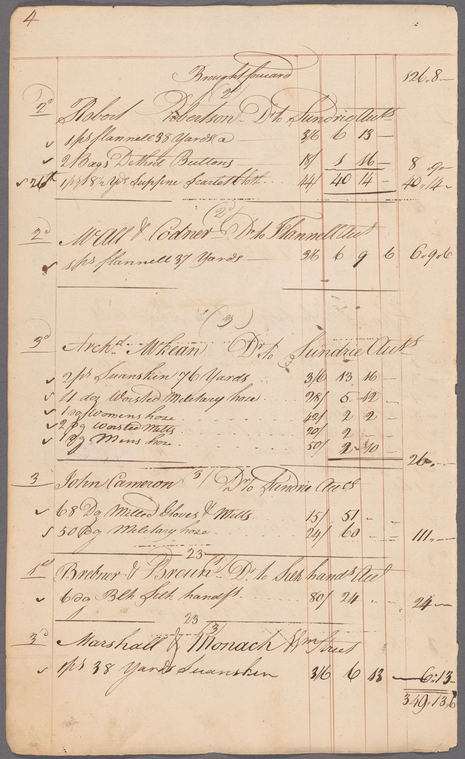 4
Brought forward 126.8 —
2d
2d Robert Robertson Dr to Sundrie Accts
1 ps flannell 38 Yards a — 3/6 6 13 —
2 Bags Buttons 18/ 1 16 — 8 9 —
26th 1 ps 18½ Yds Supfine Scarlet Cloth 44/ 40 14 — 40.14 —
(2d)
2d McAll & Codner Dr to Flannell Acct
1 ps flannell 37 Yards — 3/6 6 9 6 6.9.6
(3)
3d Archd McKean Dr to Sundrie Accts
2 ps Swanskin 76 Yards 3/6 13 16 —
4 dg Worsted Military hose 28/ 5 12 —
1 dg Womens hose 42/ 2 2
2 Dg Worsted Mitts 20/ 2 —
1 Dg Mens hose 50/ 2 10 26 —
3/
3 John Cameron Dr to Sundrie Accts
68 Dg Milled Gloves & Mitts 15/ 51 —
50 Dg Military hose 24/ 60 — 111 —
23
1st Brebner & Brown Dr to Silk handfs Acct
6 dg Blk Silk handfs 80/ 24 24 —
23
3/
3d Marshall & Monach Wm Street
1 ps 38 Yards Swanskin 3/6 6 13 — 6.13 —
349.13.6